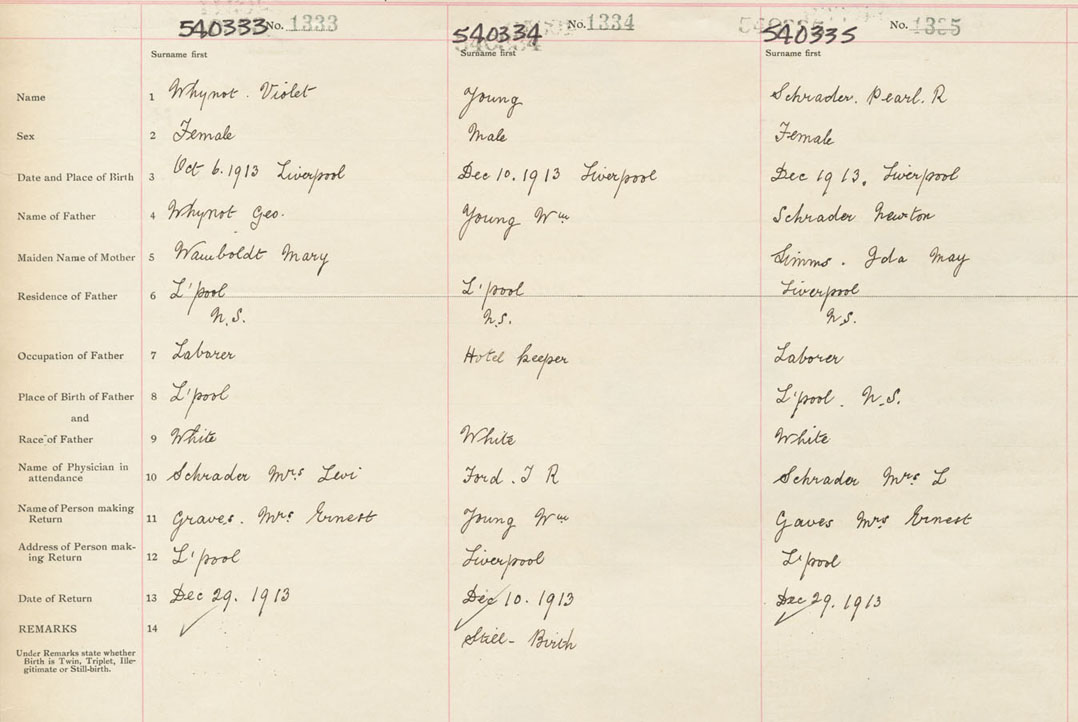 540333 No. 1333 540334 No. 1334 540335 No. 1335
Surname first Surname first Surname first
Name 1 Whynot. Violet Young Schrader. Pearl. R
Sex 2 Female Male Female
Date and Place of Birth 3 Oct 6. 1913 Liverpool Dec 10. 1913 Liverpool Dec 1913. Liverpool
Name of Father 4 Whynot Geo. Young Wm Schrader Newton
Maiden Name of Mother 5 Wamboldt Mary Simms. Ida May
Residence of Father 6 L'pool L'pool Liverpool
N.S. N.S. N.S.
Occupation of Father 7 Laborer Hotel keeper Laborer
Place of Birth of Father 8 L'pool L'pool. N.S.
and
Race of Father 9 White White White
Name of Physician in
attendance 10 Schrader Mrs Levi Ford. J R Schrader Mrs L
Name of Person making
Return 11 Graves. Mrs Ernest Young Wm Gaves Mrs Ernest
Address of Person mak-
ing Return 12 L'pool Liverpool L'pool
Date of Return 13 Dec 29. 1913 Dec 10. 1913 Dec 29. 1913
REMARKS 14 Still-Birth
Under Remarks state whether
Birth is Twin, Triplet, Ille-
gitimate or Still-birth.